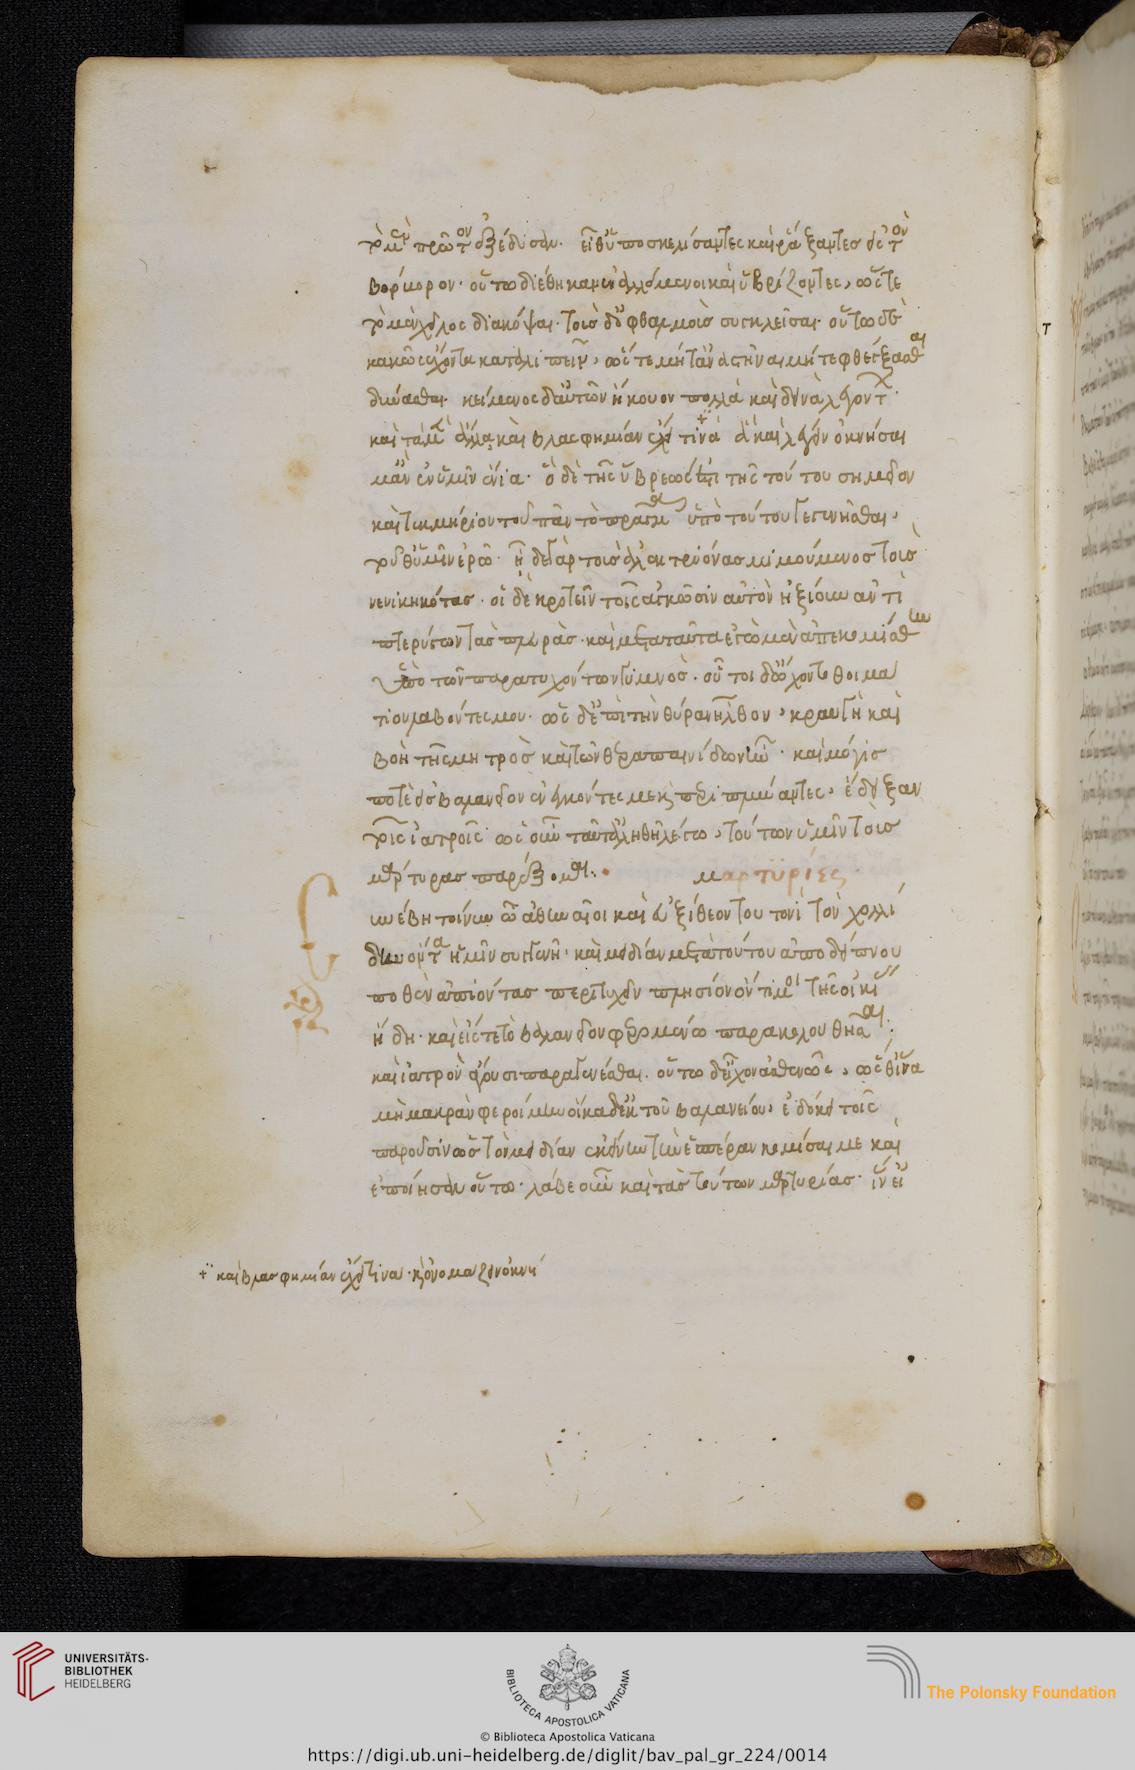 τὸ μὲν πρῶτον ἐξέδυσαν. εἶθ' ὑποσκελίσαντες καὶ ῥάξαντες εἰς τὸν
βόρβορον. οὕτω διέθηκαν ἐναλλόμενοι καὶ ὑβρίζοντες, ὥστε
τὸ μὲν χεῖλος διακόψαι. τοὺς δ' ὀφθαλμοὺς συγκλεῖσαι. οὕτω δὲ
κακῶς ἔχοντα κατέλιπον, ὥστε μήτ' ἀναστῆναι μήτε φθέγξασθαι
δύνασθαι. κείμενος δ' αὐτῶν ἤκουον πολλὰ καὶ δεινὰ λεγόντων.
καὶ τὰ μὲν ἄλλα καὶ βλασφημίαν ἔχει τινὰ ἃ καὶ λέγειν ὀκνήσαιμ'
ἂν ἐν ὑμῖν ἔνια. ὃ δὲ τῆς ὕβρεως ἐστι τῆς τούτου σημεῖον
καὶ τεκμήριον τοῦ πᾶν τὸ πρᾶγμα ὑπὸ τούτου γεγενῆσθαι,
τοῦθ' ὑμῖν ἐρῶ. ᾖδε γὰρ τοὺς ἀλεκτρυόνας μιμούμενος τοὺς
νενικηκότας. οἱ δὲ κροτεῖν τοῖς ἀγκῶσιν αὐτὸν ἠξίουν ἀντὶ
πτερύγων τὰς πλευράς. καὶ μετὰ ταῦτα ἐγὼ μὲν ἀπεκομίσθην
ὑπὸ τῶν παρατυχόντων γυμνός. οὗτοι δ' ᾤχοντο θοἰμά
τιον λαβόντες μου. ὡς δ' ἐπὶ τὴν θύραν ἦλθον, κραυγὴ καὶ
βοὴ τῆς μητρὸς καὶ τῶν θεραπαινίδων ἦν. καὶ μόγις
ποτὲ εἰς βαλανεῖον ἐνεγκόντες με καὶ περιπλύναντες, ἔδειξαν
τοῖς ἰατροῖς. ὡς οὖν ταῦτ' ἀληθῆ λέγω, τούτων ὑμῖν τοὺς
μάρτυρας παρέξομαι. μαρτυρίες
συνέβη τοίνυν ὦ ἄνδρες δικασταὶ καὶ Εὐξίθεον τουτονὶ τὸν χολλί
δην ὄντα ἡμῖν συγγενῆ. καὶ μειδίαν μετὰ τούτου ἀπὸ δείπνου
ποθὲν ἀπιόντας περιτυχεῖν πλησίον ὄντι μοι τῆς οἰκίας
ἤδη. καὶ εἴς τε τὸ βαλανεῖον φερομένῳ παρακολουθῆσαι.
καὶ ἰατρὸν ἄγουσι παραγενέσθαι. οὕτω δ' εἶχον ἀσθενῶς, ὥσθ' ἵνα
μὴ μακρὰν φεροίμην οἴκαδ' ἐκ τοῦ βαλανείου, ἐδόκει τοῖς
παροῦσιν ὡς τὸν μειδίαν ἐκείνην τὴν ἑσπέραν κομίσαι με καὶ
ἐποίησαν οὕτω. λάβε οὖν καὶ τὰς τούτων μαρτυρίας. ἵν' εἰ
καὶ βλασφημίαν ἔχει τινα. κ' ὀνομάζειν ὀκνή
T
UNIVERSITÄTS-
BIBLIOTHEK
HEIDELBERG
BIBLIOTECA APOSTOLICA VATICANA
The Polonsky Foundation
© Biblioteca Apostolica Vaticana
https://digi.ub.uni-heidelberg.de/diglit/bav_pal_gr_224/0014